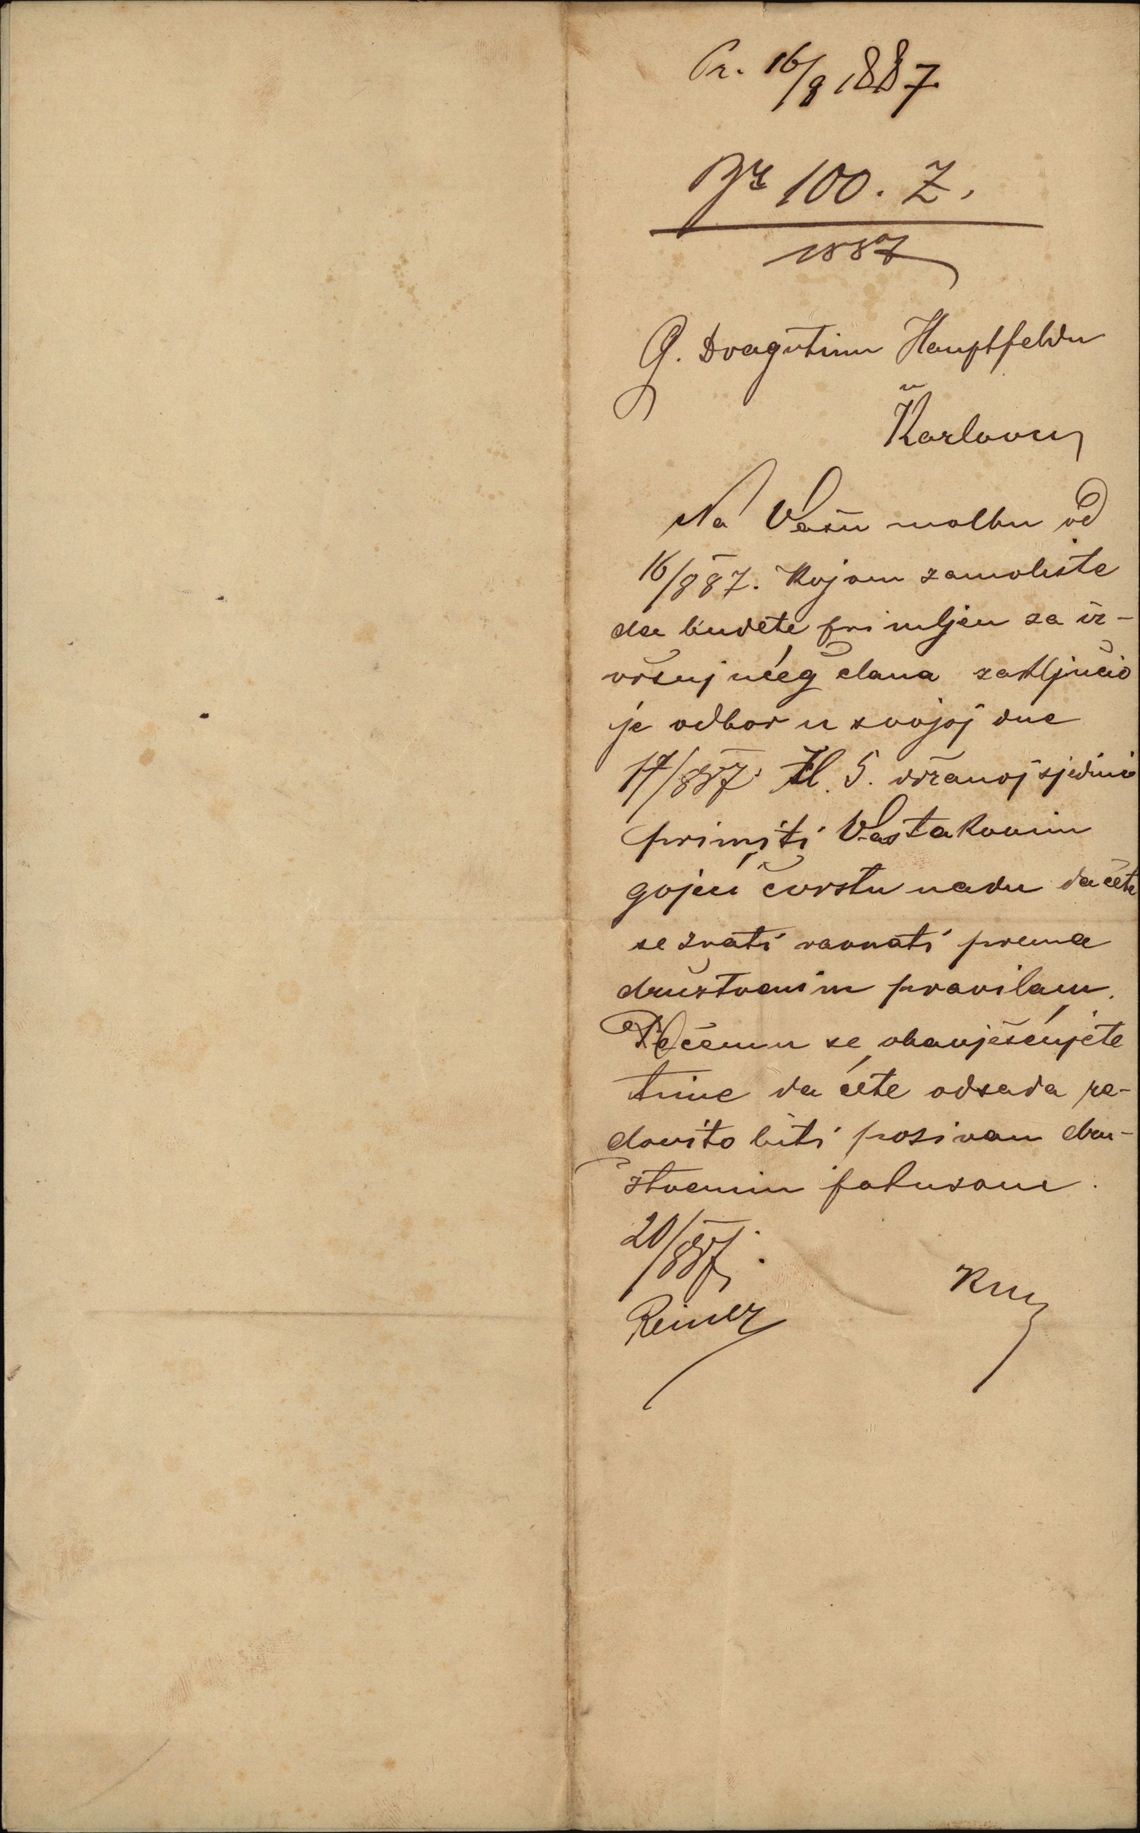 Pr. 16/8 1887
Br 100. Z.
1887
G. Dragutinu Hauptfeldu
u
Karlovcu
Na Vašu molbu od
16/8 87. kojom zamoliste
da budete primljen za iz-
vršujućeg člana zaključio
je odbor u svojoj dne
17/887. držanoj sjednici
primiti Vas takovim
gojeć čvrstu nadu da ćete
se znati ravnati prema
družtvenim pravilam.
O čemu se obavješćujete
time da ćete odsada re-
dovito biti pozivan dru-
žtvenim
20/887.
Reiner